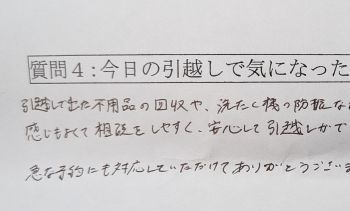 質問4:今日の引越しで気になった
引越して出た不用品の回収や、洗たく機の防振な
感じもよくて相談をしやすく、安心して引越しがで
急な予約にも対応していただけてありがとうござい